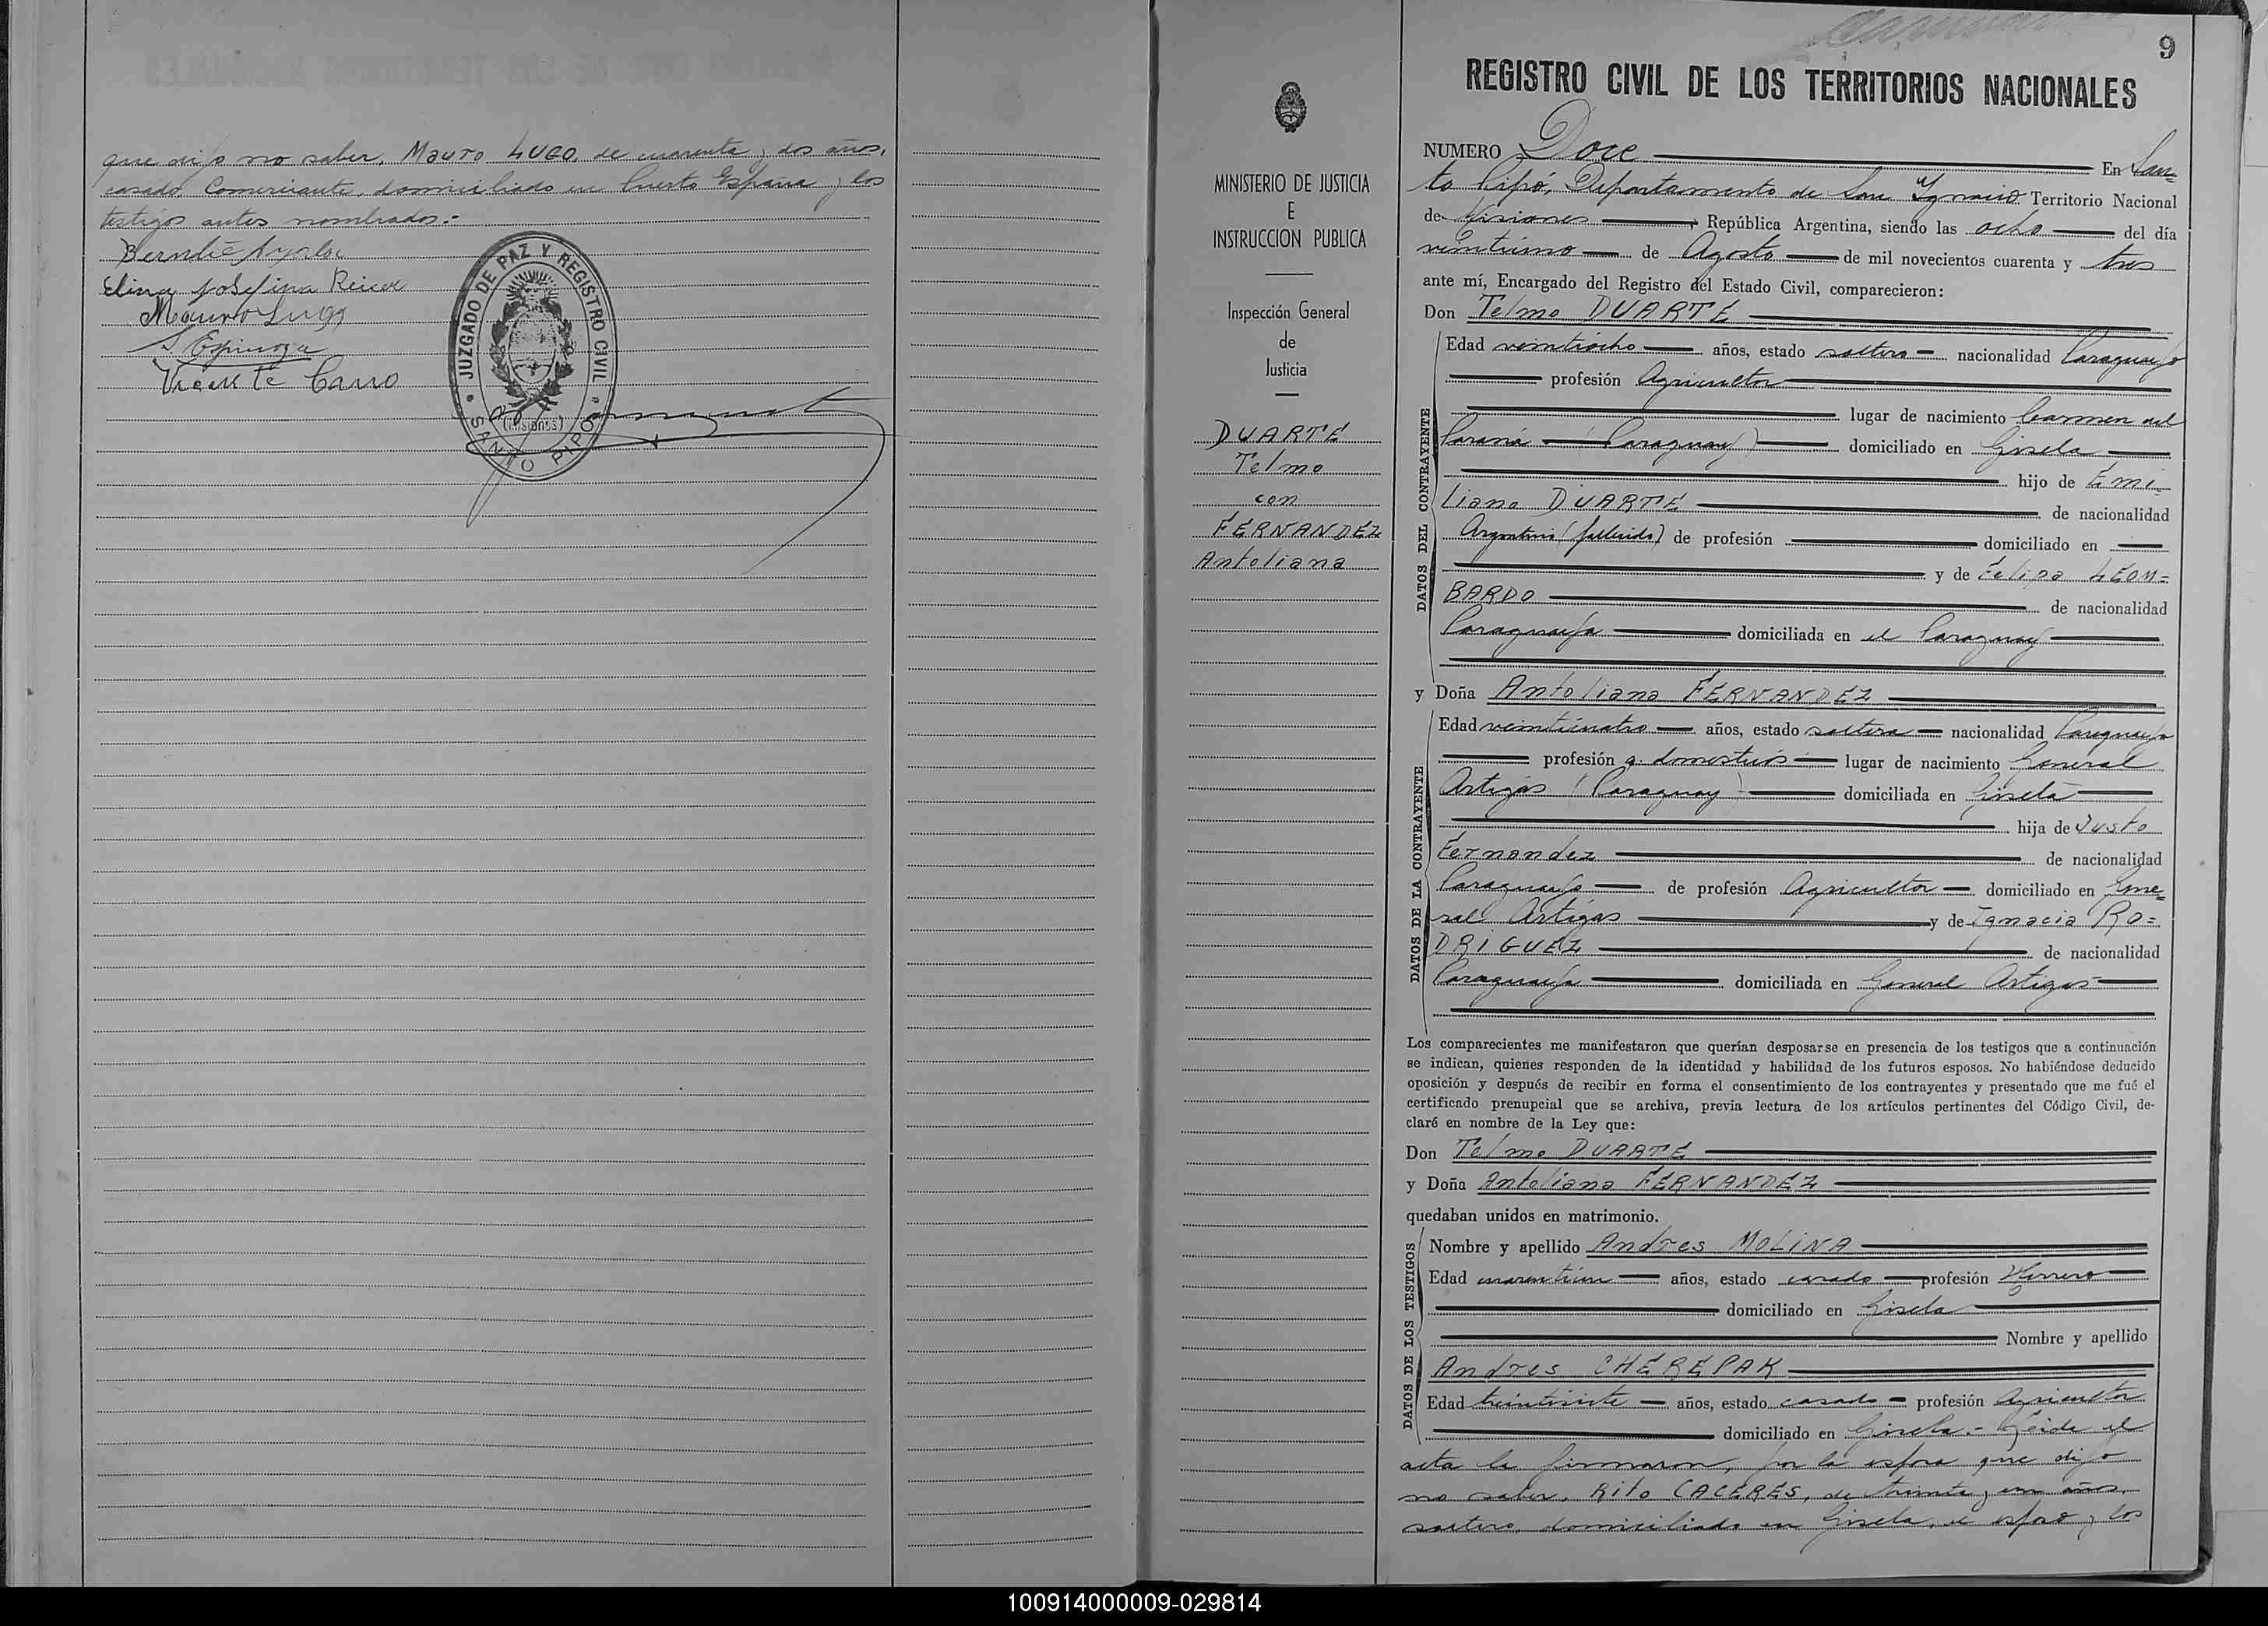 que dijo no saber, Mauro LUGO, de cuarenta y dos años,
casado, Comerciante, domiciliado en Puerto España y los
testigos antes nombrados.-
Elina Josefina
Mauro Lugo
S Espinoza
Vicente Carro
JUZGADO DE PAZ Y REGISTRO CIVIL
(Misiones)
SANTO PIPO
MINISTERIO DE JUSTICIA
E
INSTRUCCION PUBLICA
Inspección General
de
Justicia
DUARTE
Telmo
con
FERNANDEZ
Antoliana
9
REGISTRO CIVIL DE LOS TERRITORIOS NACIONALES
NUMERO Doce En San-
to Pipó, Departamento de San Ygnacio Territorio Nacional
de Misiones, República Argentina, siendo las ocho del día
veintiuno de Agosto de mil novecientos cuarenta y tres
ante mí, Encargado del Registro del Estado Civil, comparecieron:
Don Telmo DUARTE
Edad veintiocho años, estado soltero nacionalidad Paraguaya
profesión Agricultor
lugar de nacimiento Carmen del
Paraná (Paraguay) domiciliado en Gisela
hijo de Emi-
liano DUARTE de nacionalidad
Argentina (fallecido) de profesión domiciliado en
y de Felipa LEON=
BARDO de nacionalidad
Paraguaya domiciliada en el Paraguay
DATOS DEL CONTRAYENTE
y Doña Antoliana FERNANDEZ
Edad veinticuatro años, estado soltera nacionalidad Paraguaya
profesión q. domésticos lugar de nacimiento General
Artigas (Paraguay) domiciliada en Gisela
hija de Justo
Fernandez de nacionalidad
Paraguaya de profesión Agricultor domiciliado en Gene=
ral Artigas y de Ignacia RO=
DRIGUEZ de nacionalidad
Paraguaya domiciliada en General Artigas
DATOS DE LA CONTRAYENTE
Los comparecientes me manifestaron que querían desposarse en presencia de los testigos que a continuación
se indican, quienes responden de la identidad y habilidad de los futuros esposos. No habiéndose deducido
oposición y después de recibir en forma el consentimiento de los contrayentes y presentado que me fué el
certificado prenupcial que se archiva, previa lectura de los artículos pertinentes del Código Civil, de-
claré en nombre de la Ley que:
Don Telmo DUARTE
y Doña Antoliana FERNANDEZ
quedaban unidos en matrimonio.
Nombre y apellido Andres MOLINA
Edad cuarentiun años, estado casado profesión Herrero
domiciliado en Gisela
Nombre y apellido
Andres CHEREPAK
Edad treintisiete años, estado casado profesión Agricultor
domiciliado en Gisela.- Leída el
DATOS DE LOS TESTIGOS
acta la firmaron, por la esposa que dijo
no saber, Rito CACERES, de treinta y un años,
soltero, domiciliado en Gisela, el esposo y los
100914000009-029814